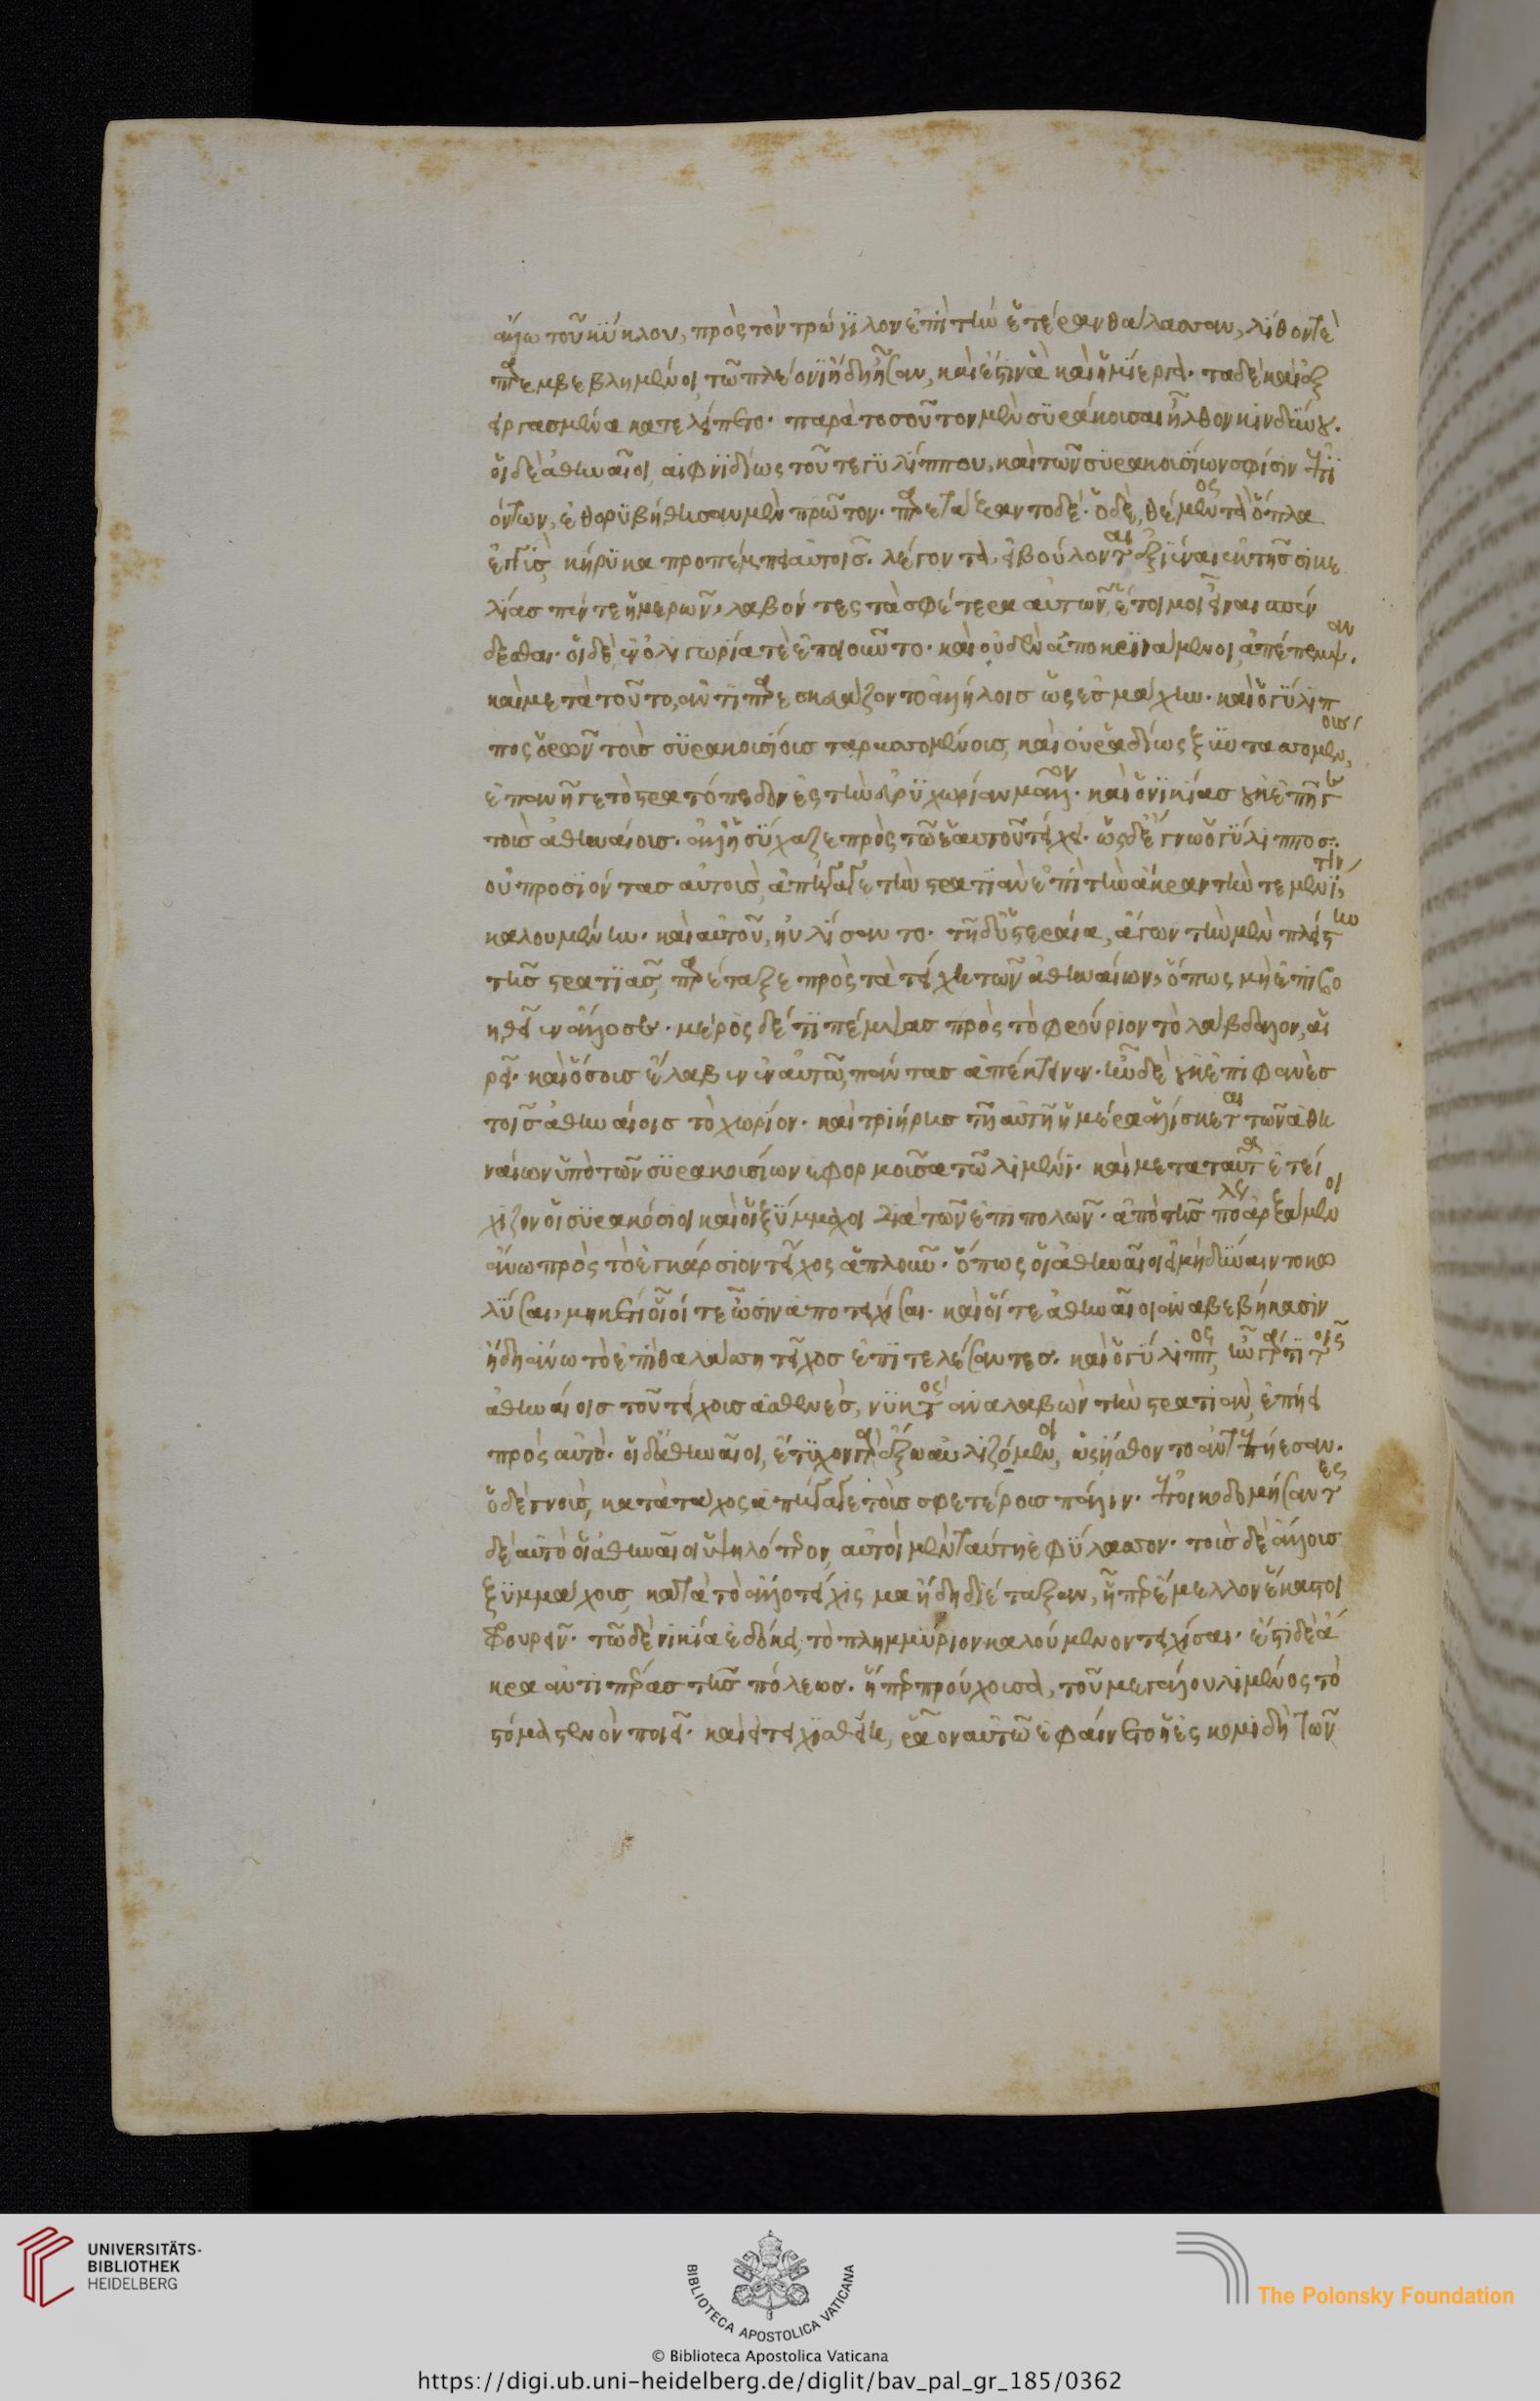 ἄλλω τοῦ κύκλου, πρὸς τὸν τρώγιλον ἐπὶ τὴν ἑτέραν θάλασσαν, λίθοι τὲ
παρεμβεβλημένοι τῶ πλέονι ἤδη ἦσαν, καὶ ἔστιν ἃ καὶ ἡμίεργα· τὰ δὲ καὶ ἐξ
ειργασμένα κατελείπετο· παρὰ τοσοῦτον μὲν συράκουσαι ἦλθον κινδύνου.
οἱ δὲ ἀθηναῖοι αἰφνιδίως τοῦ τε γυλίππου, καὶ τῶν συρακουσίων σφίσιν ἐπι
όντων, ἐθορυβήθησαν μὲν πρῶτον· παρετάξαντο δέ· ὁ δὲ, θέμενος τὰ ὅπλα
ἐγγὺς, κήρυκα προπέμπει αὐτοῖς λέγοντα, εἰ βούλονται ἐξιέναι ἐκ τῆς σικε
λίας πέντε ἡμερῶν, λαβόντες τὰ σφέτερα αὐτῶν, ἑτοῖμοι εἶναι σπέν
δεσθαι· οἱ δὲ, ἐν ὀλιγωρία τὲ ἐποιοῦντο· καὶ οὐδὲν ἀποκρινάμενοι ἀπέπεμψαν.
καὶ μετὰ τοῦτο, ἀντιπαρεσκευάζοντο ἀλλήλοις ὡς ἐς μάχην· καὶ ὁ γύλιπ
πος ὁρῶν τοὺς συρακουσίους ταρασσομένους, καὶ οὐ ῥαδίως ξυντασσομένους,
ἐπανῆγε τὸ στρατόπεδον ἐς τὴν εὐρυχωρίαν μᾶλλον· καὶ ὁ νικίας οὐκ ἐπῆγε
τοὺς ἀθηναίους· ἀλλ' ἡσύχαζε πρὸς τῶ ἑαυτοῦ τείχει· ὡς δὲ ἔγνω ὁ γύλιππος
οὐ προσιόντας αὐτοὺς, ἀπήγαγε τὴν στρατιὰν ἐπὶ τὴν ἄκραν τὴν τεμενῖτιν
καλουμένην· καὶ αὐτοῦ, ηὐλίσαντο· τῆ δ' ὑστεραία, ἄγων τὴν μὲν πλείστην
τῆς στρατιᾶς, παρέταξε πρὸς τὰ τείχη τῶν ἀθηναίων, ὅπως μὴ ἐπιβο
ηθεῖεν ἄλλοσε· μέρος δέ τι πέμψας πρὸς τὸ φρούριον τὸ λάβδαλον, αἱ
ρεῖ· καὶ ὅσους ἔλαβεν ἐν αὐτῶ, πάντας ἀπέκτεινεν· ἦν δὲ οὐκ ἐπιφανὲς
τοῖς ἀθηναίοις τὸ χωρίον· καὶ τριήρης τῆ αὐτῆ ἡμέρα ἁλίσκεται τῶν ἀθη
ναίων ὑπὸ τῶν συρακουσίων ἐφορμοῦσα τῶ λιμένι· καὶ μετὰ ταῦτα ἐτεί
χιζον οἱ συρακόσιοι καὶ οἱ ξύμμαχοι διὰ τῶν ἐπιπολῶν· ἀπὸ τῆς πόλεως ἀρξάμενοι
ἄνω πρὸς τὸ ἐγκάρσιον τεῖχος ἁπλοῦν· ὅπως οἱ ἀθηναῖοι εἰ μὴ δύναιντο κω
λῦσαι, μηκέτι οἷοί τε ὦσιν ἀποτειχίσαι· καὶ οἵ τε ἀθηναῖοι ἀναβεβήκασιν
ἤδη ἄνω τὸ ἐπὶ θαλάσση τεῖχος ἐπιτελέσαντες· καὶ ὁ γύλιππος, ἦν γάρ τι τοῖς
ἀθηναίοις τοῦ τείχους ἀσθενὲς, νυκτὸς ἀναλαβὼν τὴν στρατιὰν, ἐπήει
πρὸς αὐτό· οἱ δ' ἀθηναῖοι, ἔτυχον γὰρ ἔξω αὐλιζόμενοι, ὡς ἤσθοντο ἀντεπήεσαν.
ὁ δὲ γνοὺς, κατὰ τάχος ἀπήγαγε τοὺς σφετέρους πάλιν· ἐποικοδομήσαντες
δὲ αὐτὸ οἱ ἀθηναῖοι ὑψηλότερον, αὐτοὶ μὲν ταύτη ἐφύλασσον· τοὺς δὲ ἄλλους
ξυμμάχους, κατὰ τὸ ἄλλο τείχισμα ἤδη διέταξαν, ἧπερ ἔμελλον ἕκαστοι
φρουρεῖν· τῶ δὲ νικία ἐδόκει, τὸ πλημμύριον καλούμενον τειχίσαι· ἔστι δὲ ἄ
κρα ἀντιπέρας τῆς πόλεως· ἥπερ προύχουσα, τοῦ μεγάλου λιμένος τὸ
στόμα στενὸν ποιεῖ· καὶ εἰ τειχισθείη, ῥᾶον αὐτῶ ἐφαίνετο ἡ ἐσκομιδὴ τῶν
UNIVERSITÄTS-
BIBLIOTHEK
HEIDELBERG
BIBLIOTECA APOSTOLICA VATICANA
The Polonsky Foundation
© Biblioteca Apostolica Vaticana
https://digi.ub.uni-heidelberg.de/diglit/bav_pal_gr_185/0362